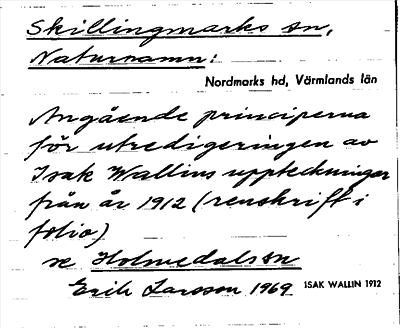 Skillingmarks sn,
Naturnamn:
Nordmarks hd, Värmlands län
Angående principerna
för utredigeringen av
Isak Wallins uppteckningar
från år 1912 (renskrift i
folio)
se Holmedals sn
Erik Larsson 1969
ISAK WALLIN 1912